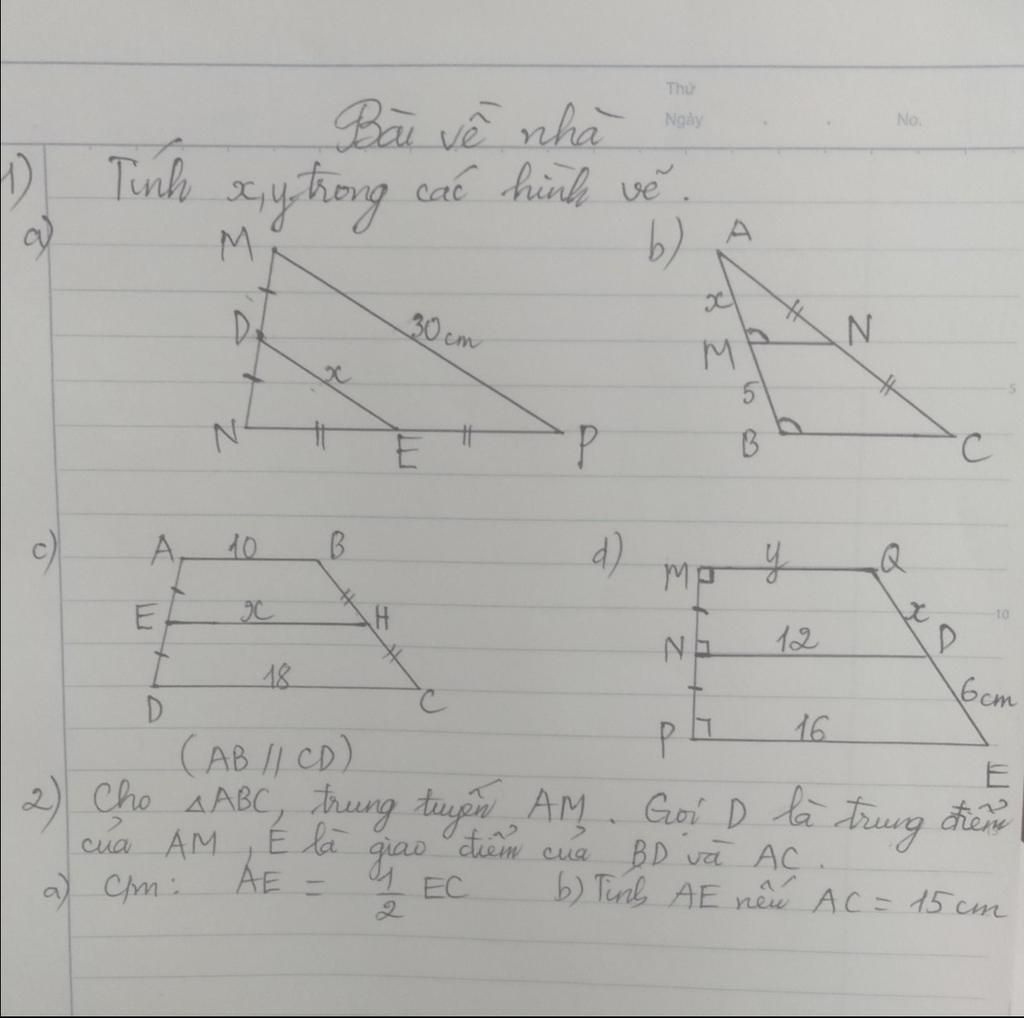 Thứ
Ngày . . No.
Bài về nhà
1) Tính x,y trong các hình vẽ.
a)
M
D
30cm
x
N
E
P
b)
A
x
N
M
5
5
B
C
c)
A 10 B
E x H
18
D
C
(AB // CD)
d)
M y Q
x
10
N 12 D
6cm
P 16
E
2) Cho △ABC, trung tuyến AM. Gọi D là trung điểm
của AM, E là giao điểm của BD và AC.
a) C/m: AE = 1/2 EC b) Tính AE nếu AC = 15 cm